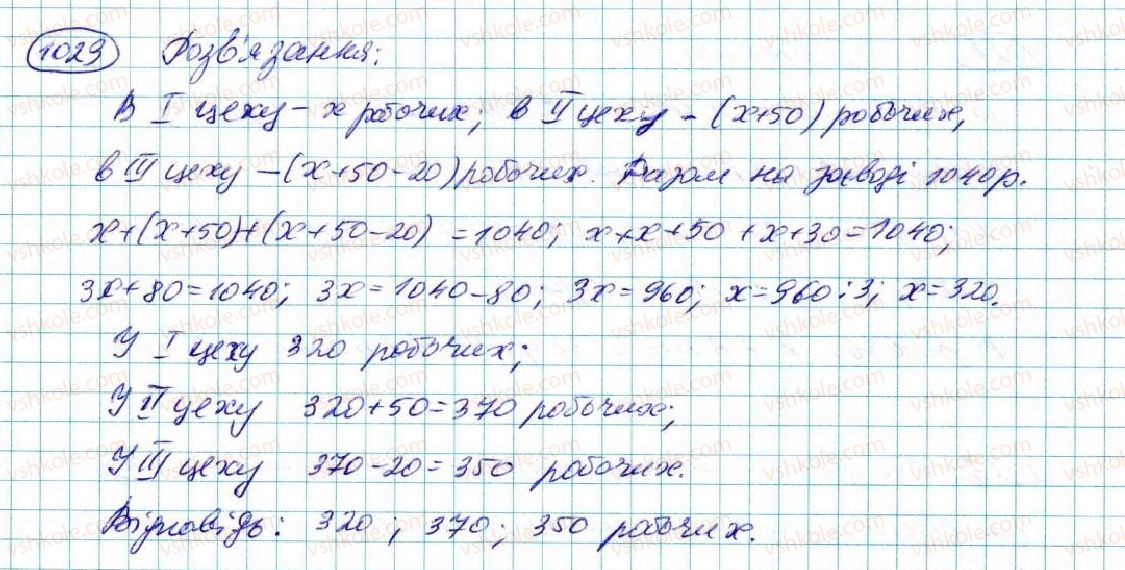 1029 Розв'язання:
В I цеху – x робочих; в II цеху – (x+50) робочих,
в III цеху – (x+50-20) робочих. Разом на заводі 1040 р.
x+(x+50)+(x+50-20) = 1040; x+x+50+x+30=1040;
3x+80=1040; 3x=1040-80; 3x=960; x=960:3; x=320.
У I цеху 320 робочих;
У II цеху 320+50=370 робочих;
У III цеху 370-20=350 робочих.
Відповідь: 320; 370; 350 робочих.